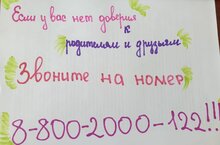 Если у вас нет доверия
к
родителям и друзьям
Звоните на номер
8-800-2000-122!!!